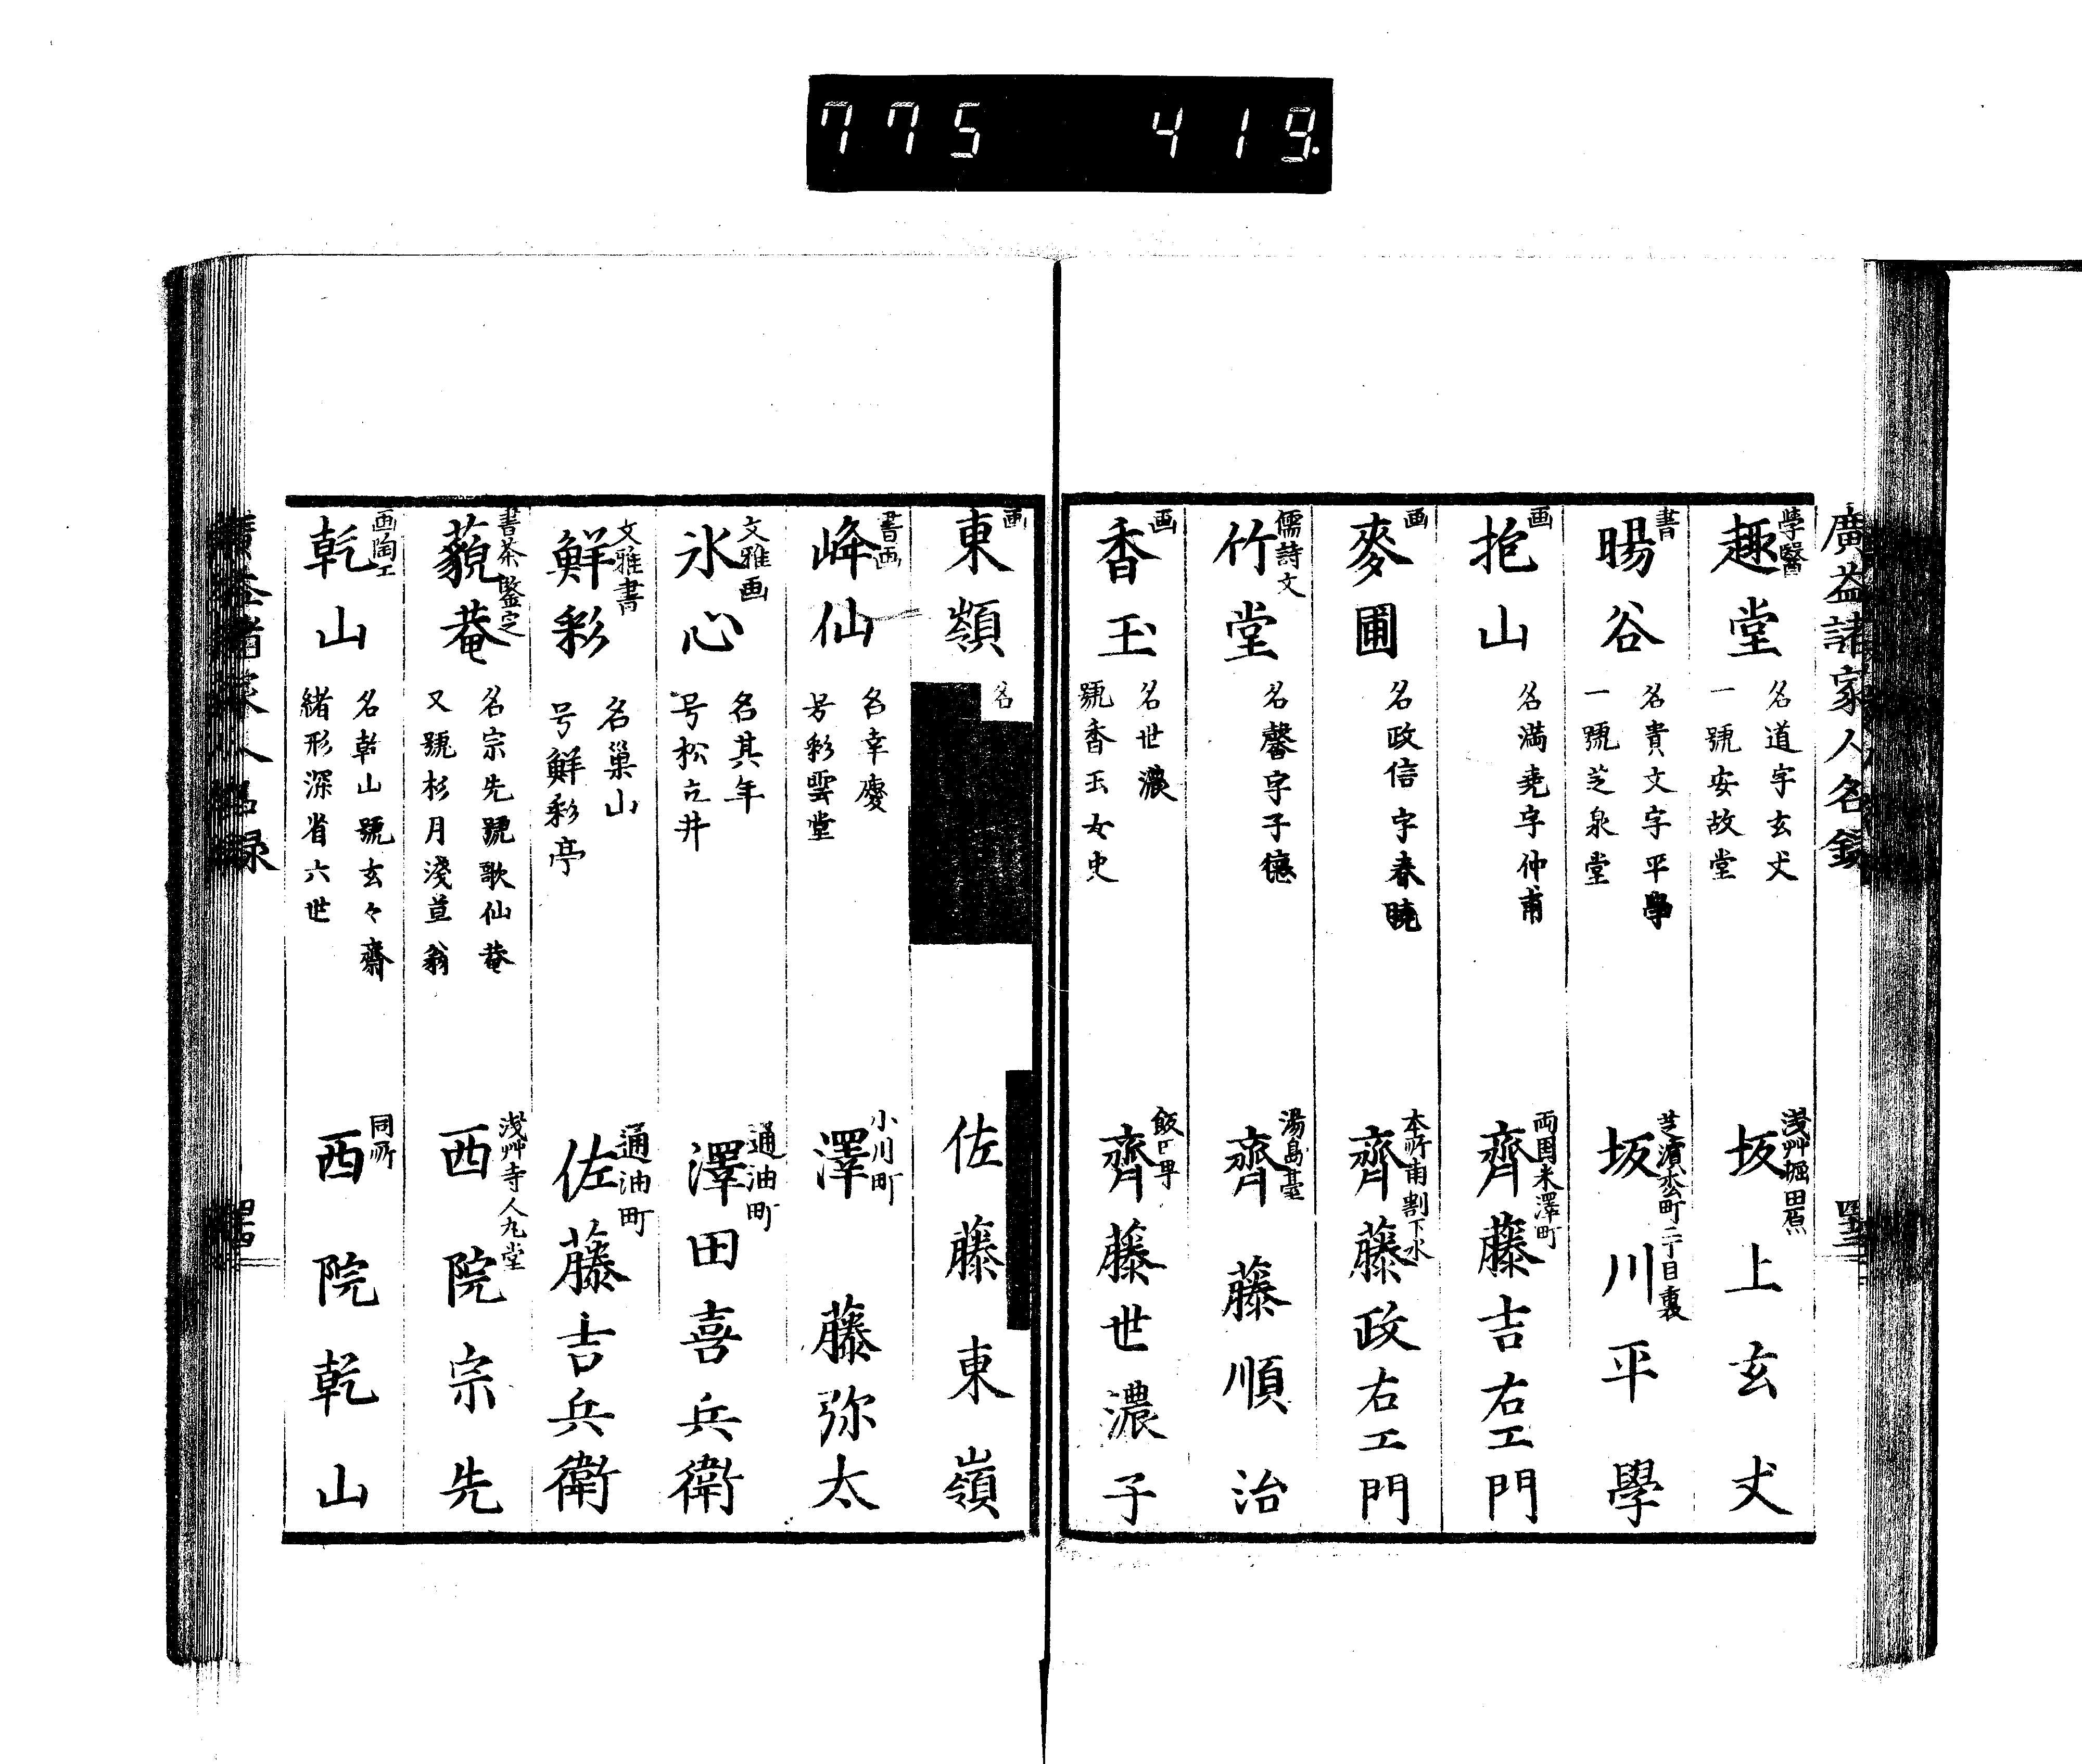 775 419.
廣益諸家人名録
學醫
趣堂
名道字玄丈
一號安故堂
淺艸堀田原
坂上玄丈
書
暘谷
名貴文字平學
一號芝泉堂
芝濱松町二丁目裏
坂川平學
画
抱山
名満堯字仲甫
両国米澤町
齊藤吉右エ門
画
麥圃
名政信字春暁
本所南割下水
齊藤政右エ門
儒詩文
竹堂
名馨字子德
湯島臺
齊藤順治
画
香玉
名世濃
號香玉女史
飯田町
齊藤世濃子
画
東嶺
名
佐藤東嶺
書画
峰仙
名幸慶
号彩雲堂
小川町
澤藤弥太
文雅画
氷心
名其年
号松立井
通油町
澤田喜兵衛
文雅書
鮮彩
名巣山
号鮮彩亭
通油町
佐藤吉兵衛
書茶鑒定
藐菴
名宗先號歌仙菴
又號杉月淺草翁
淺艸寺人丸堂
西院宗先
画陶工
乾山
名乾山號玄々齋
緒形深省六世
同所
西院乾山
廣益諸家人名録